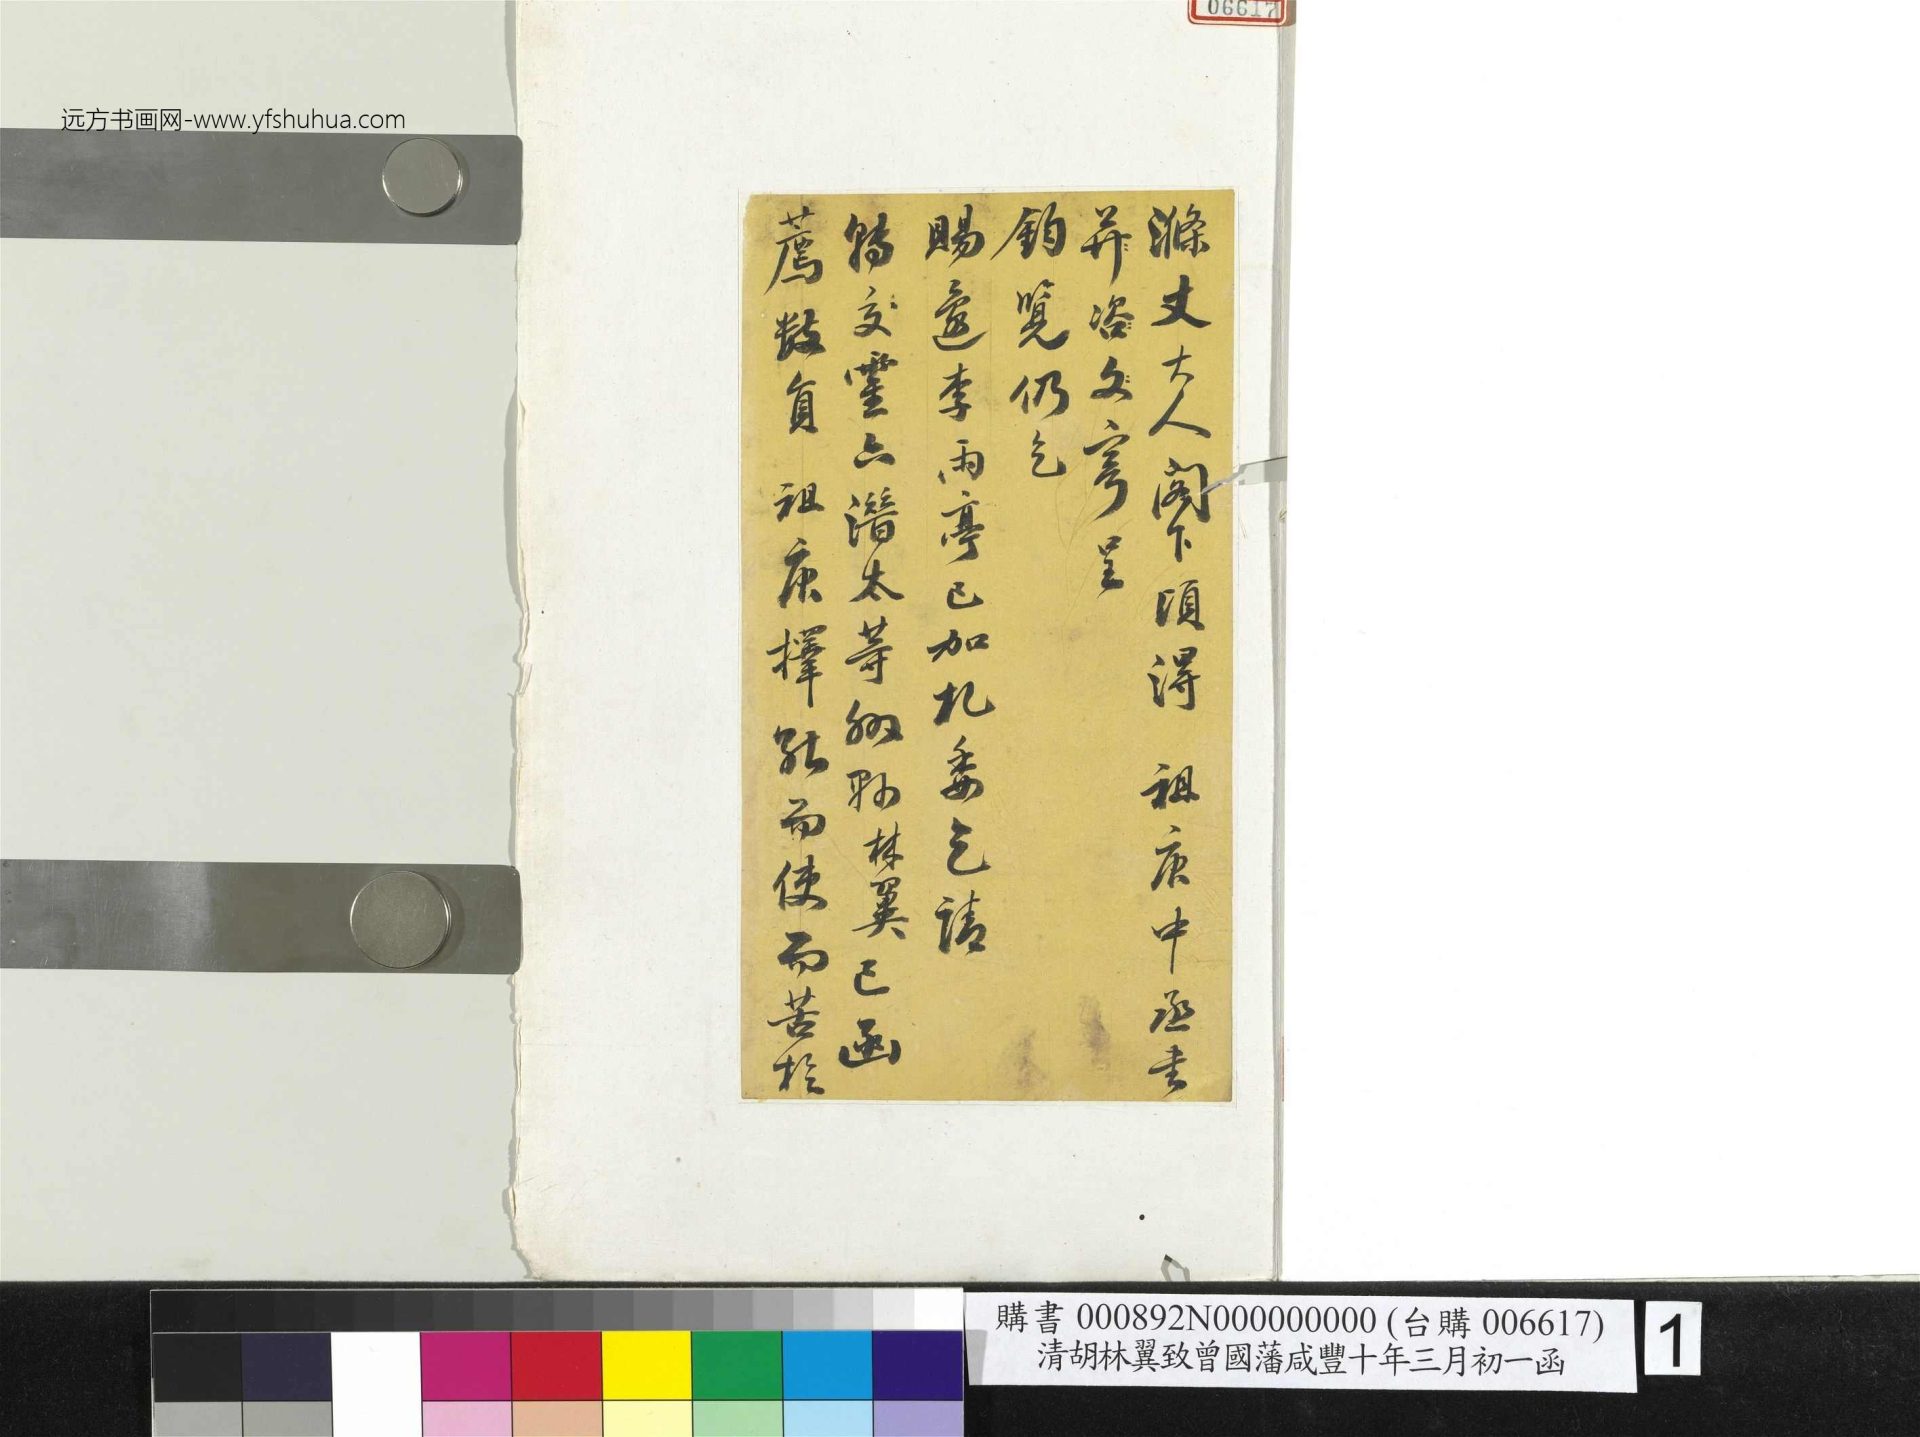 06617
远方书画网-www.yfshuhua.com
滌丈大人閣下頃得 祖庚中丞書
并咨文寄呈
鈞覽仍乞
賜還李雨亭已加札委乞請
轉交霍六潛太等処聆林翼已函
薦數員 祖庚擇能而使而苦於
購書 000892N000000000 (台購 006617)
清胡林翼致曾國藩咸豐十年三月初一函
1